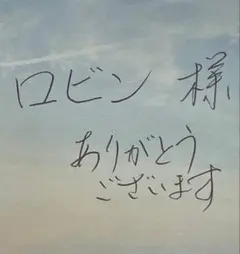 ロビン 様
ありがとう
ございます